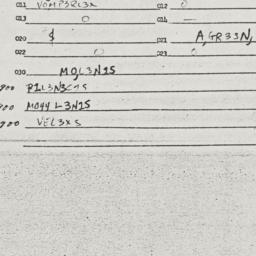 011 VOMP3RL3X 012 0
013 0 014 —
020 $ 021 A,GR33N,
022 0 023 0
030 MOL3N15
900
900 M044 L3N15
900 VEL3XS